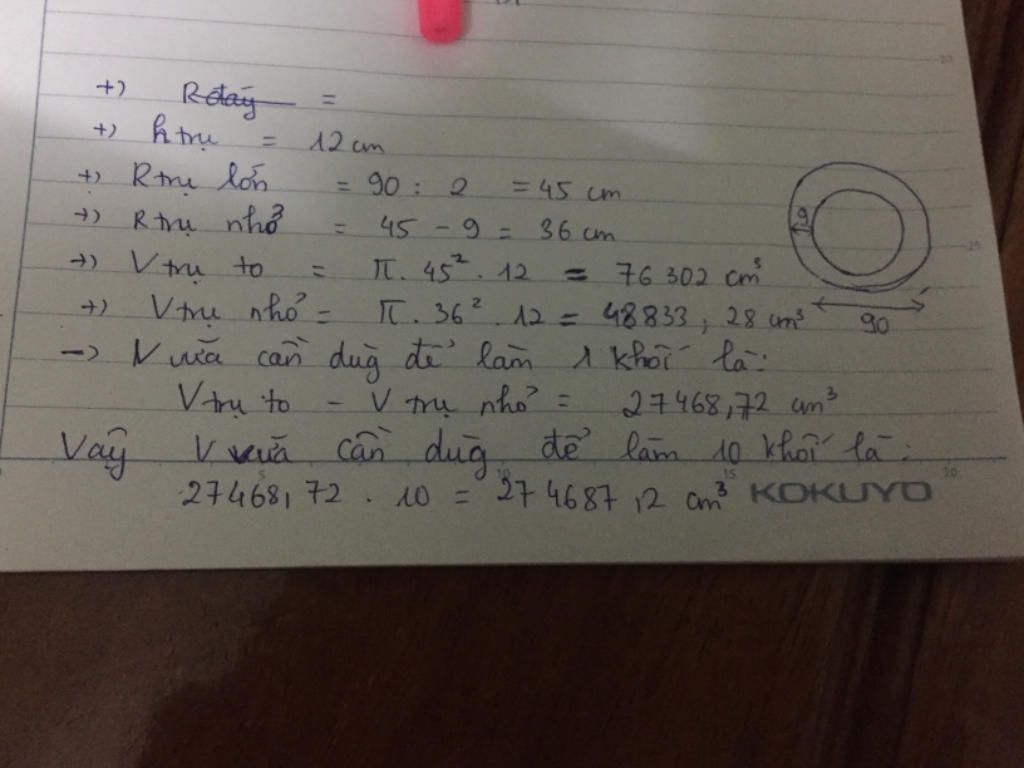 +) Rđáy =
+) h trụ = 12 cm
+) R trụ lớn = 90 : 2 = 45 cm
+) R trụ nhỏ = 45 - 9 = 36 cm
+) V trụ to = π. 45². 12 = 76 302 cm³
+) V trụ nhỏ = π. 36². 12 = 48833, 28 cm³
9
90
→ V vữa cần dùg để làm 1 khối là:
V trụ to - V trụ nhỏ = 27468,72 cm³
Vậy V vữa cần dùg để làm 10 khối là:
27468,72 . 10 = 274687,2 cm³
KOKUYO
5 10 15 20
20
25